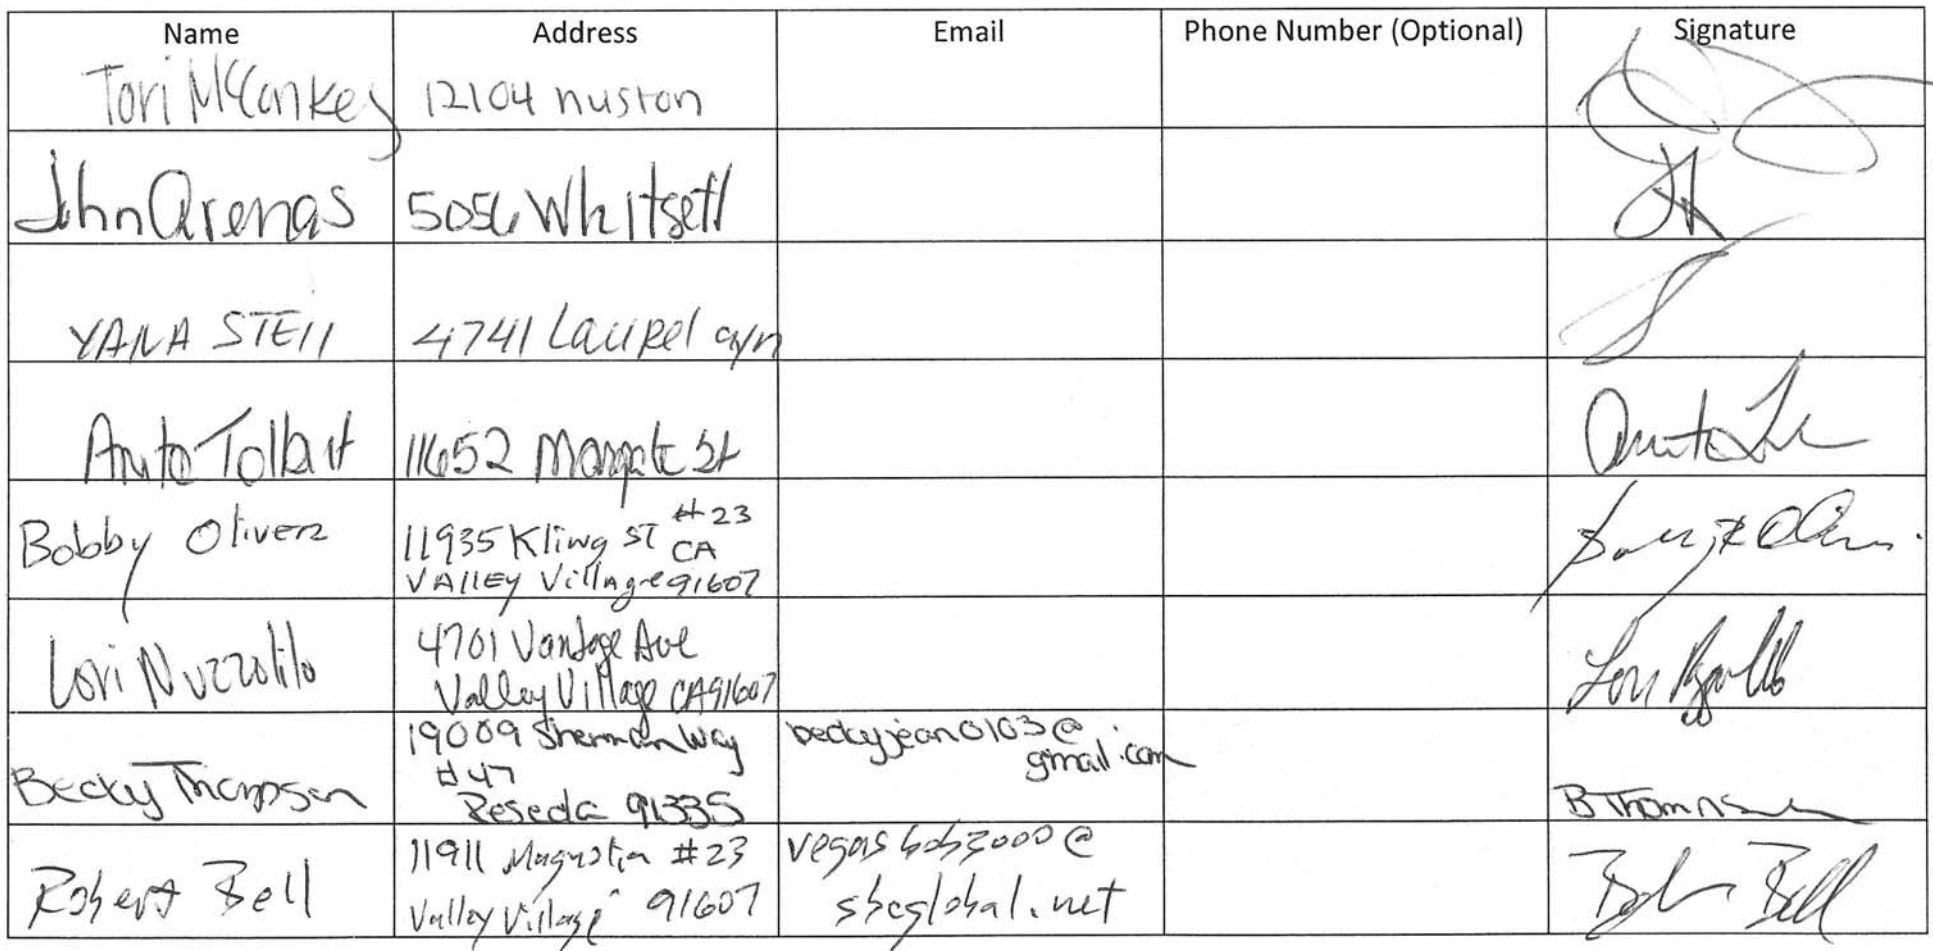 Name Address Email Phone Number (Optional) Signature
Tori McConkey 12104 huston
John Arenas 5056 Whitsett
YANA STEII 4741 Laurel cyn
Anita Tolbert 11652 Margate St
Bobby Oliver 11935 Kling ST #23
CA
VAllEy Village 91607
Lori Nuzzolilo 4701 Vantage Ave
Valley Village CA 91607
Becky Thompson 19009 Sherman Way
#47
Reseda 91335
beckyjean0103@
gmail.com
B Thompson
Robert Bell 11911 Magnolia #23
Valley Village 91607
vegasbob2000@
sbcglobal.net